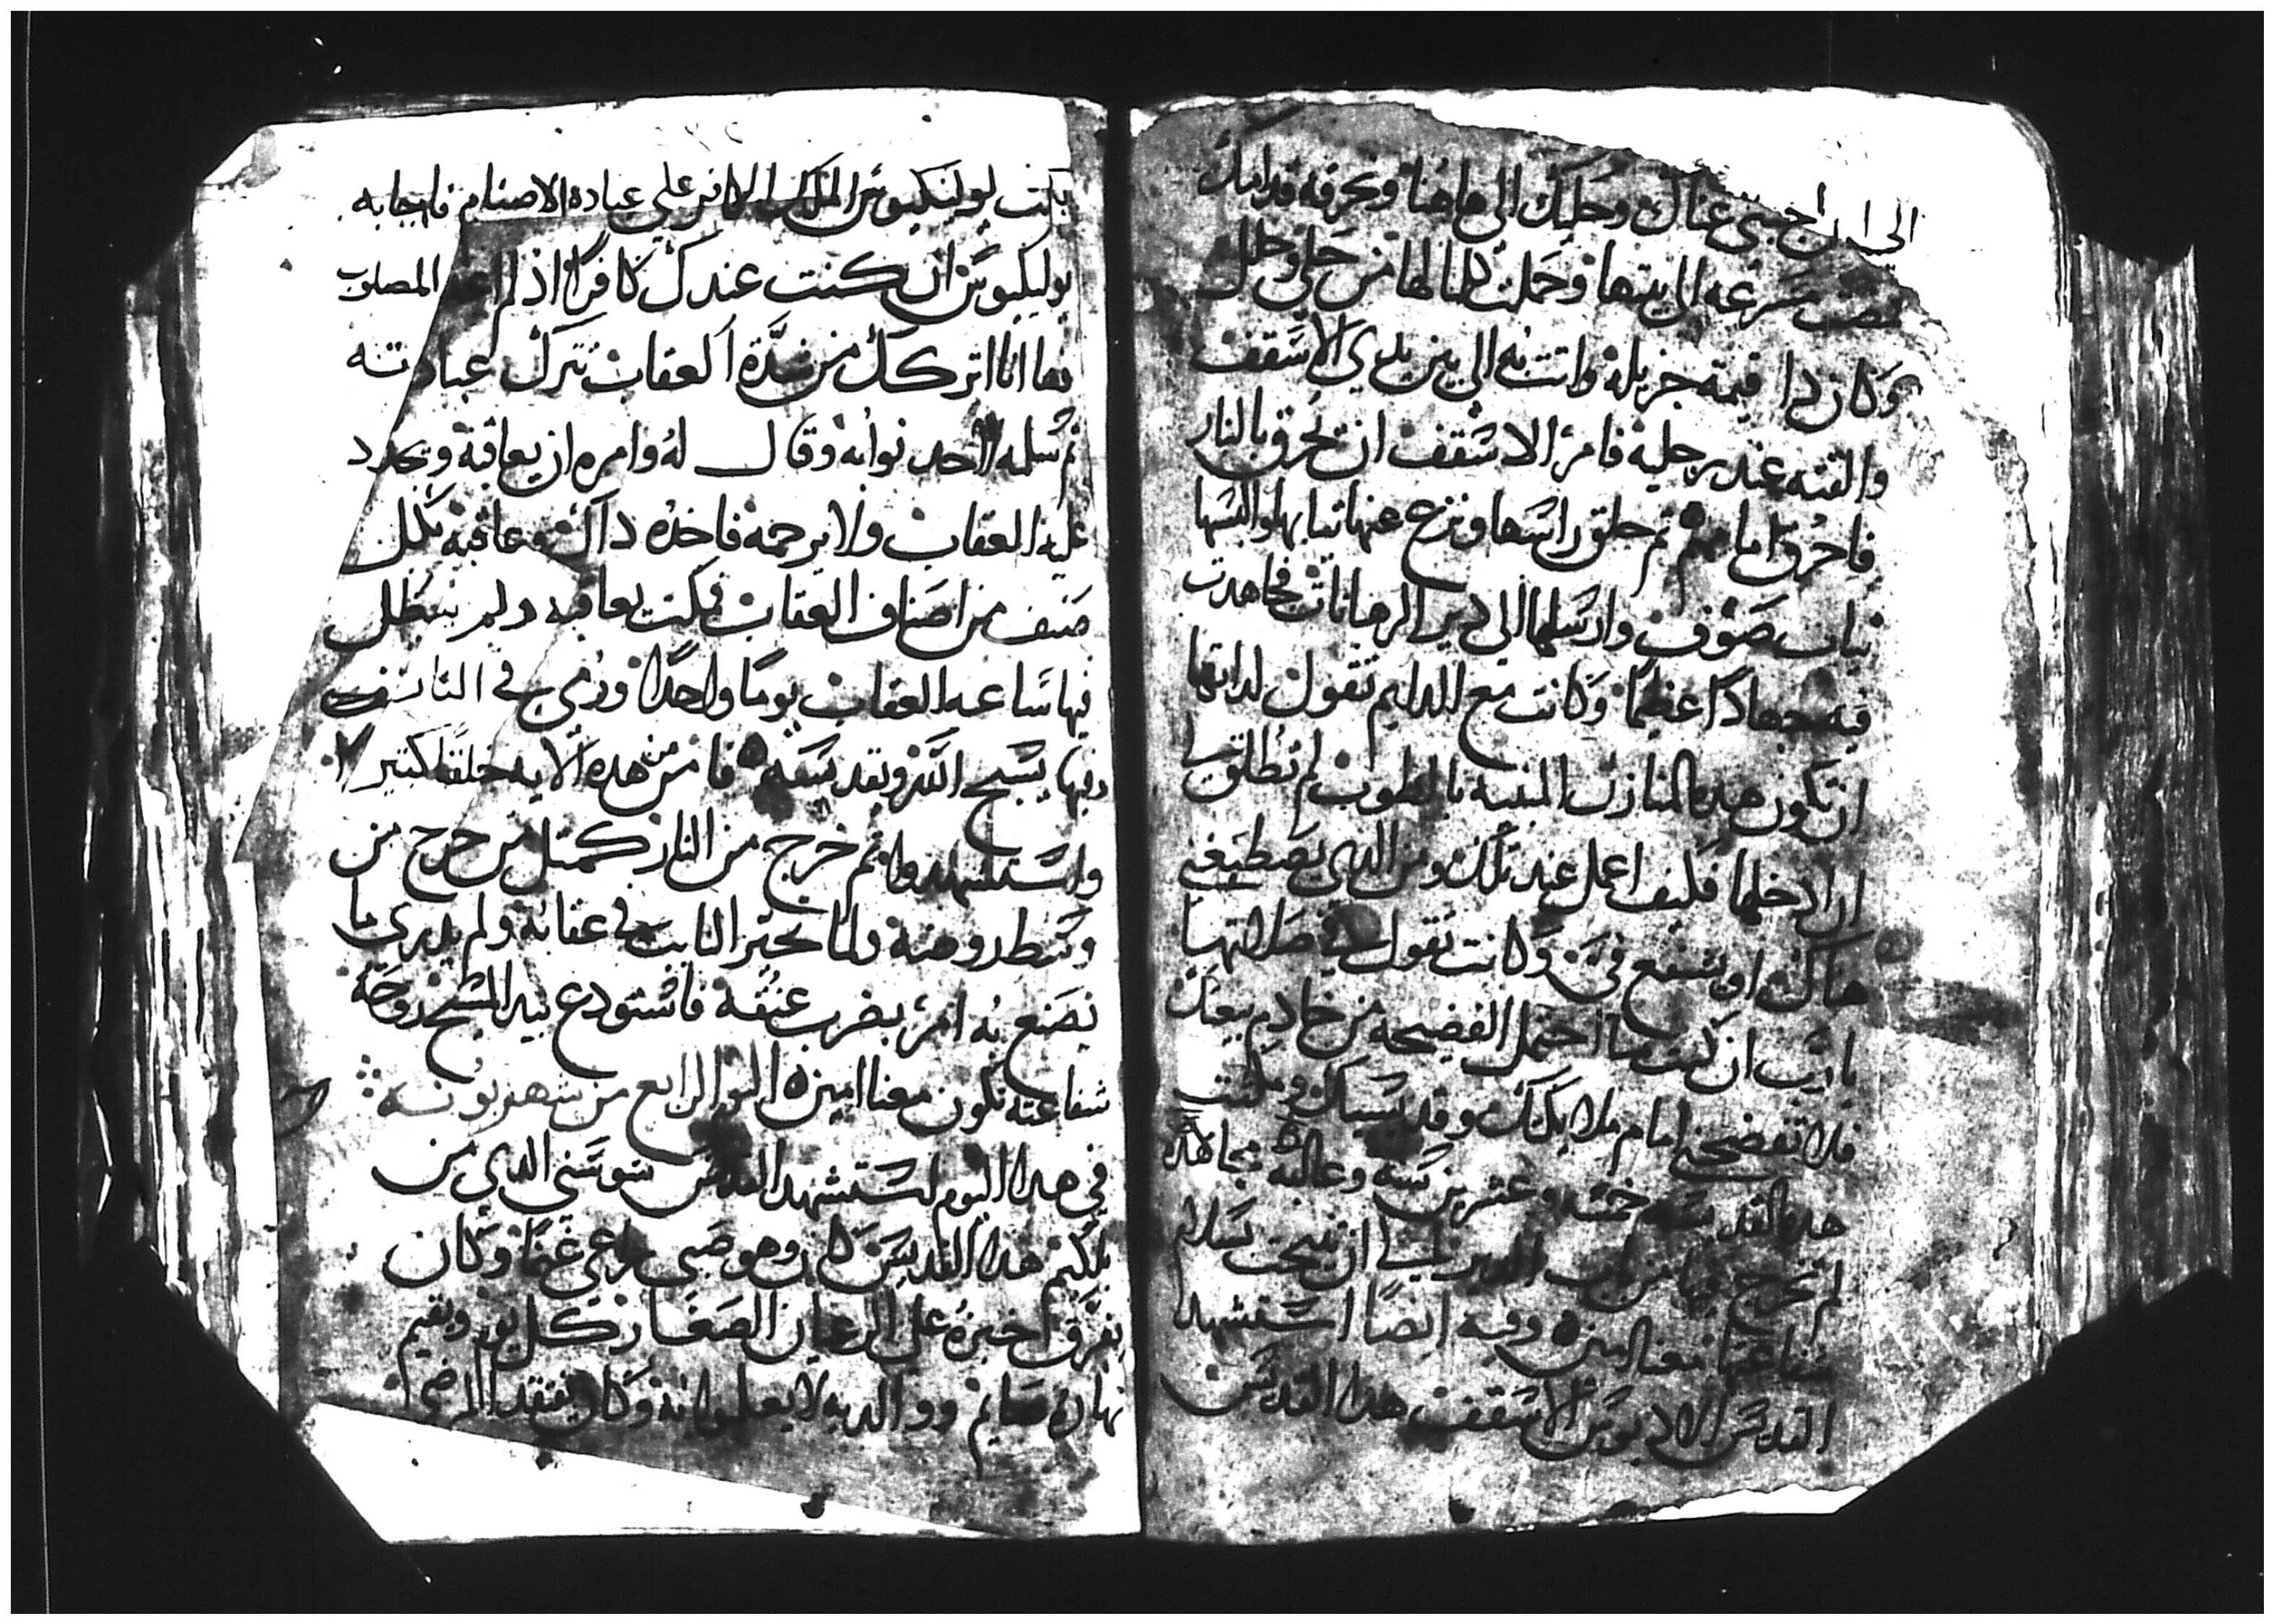 الى ان اجبتى عناك وحليك الى هاهنا ونحرقه قدامك
فمضت مسرعه الى بيتها وحملت كلما لها من حلي وحلل
وكان دا قيمة جزيلة واتت به الى بين يدي الاسقف
والقته عند رجليه فامر الاسقف ان يحرق بالنار
فاحرق امامهم ثم حلق راسها ونزع عنها تيابها والبسها
تياب صوف وارسلها الي دير الرهبانات فجاهدت
فيه جهادا عظيما وكانت مع الدايم تقول لداتها
ان تكون هده المنازل المبنيه بالطوب لم تطلق لي
ان ادخلها فكيف اعمل عند تلك ومن الدي يصطبغني
هناك او يشفع في وكانت تقول في صلاتها
يارب ان كنت ما احتمل الفضيحه من خادم بيعتك
فلا تفضحني امام ملايكتك وقديسيك ومكتت
هده القديسه خمسه وعشرين سنه وعاليه مجاهده
لم تخرج فيها من باب الدير الي ان تنيحت بسلام
شفاعتها معنا امين وفيه ايضا استشهد
القديس الاسقف هدا القديس
بكت لوليكيوس الملك الكافر على عبادة الاصنام فاجابه
لوليكيوس ان كنت عندك كافرا اذ لم اعبد المصلوب
فها انا اتركك من شدة العقاب تترك عبادته
ثم سلمه لاحد نوابه وقال له وامره ان يعاقبه ويجدد
عليه العقاب ولا يرحمه فاخده داك وعاقبه بكل
صنف من اصناف العقاب فمكت يعاقبه ولم يبطل
فيها ساعه العقاب يوما واحدا ورمي في النار
وفيها يسبح الله ويقدسه فامن من هده الايه خلقا كتير
واستشهدوا ثم خرج من النار كمتل من خرج من
وسط روضة ولما تحير النايب في عقابه ولم يدري ما
يصنع به امر بضرب عنقه فاستودع بيد المسيح روحه
شفاعته تكون معنا امين اليوم الرابع من شهر بونه
في هدا اليوم استشهد القديس سوسني الدي من
بلكيم هدا القديس كان وهو صبي يرعى غنما وكان
يفرق خبزه على الرعيان الصغار كل يوم ويقيم
نهاره صايم ووالديه لا يعلموا به وكان يفتقد المرضى